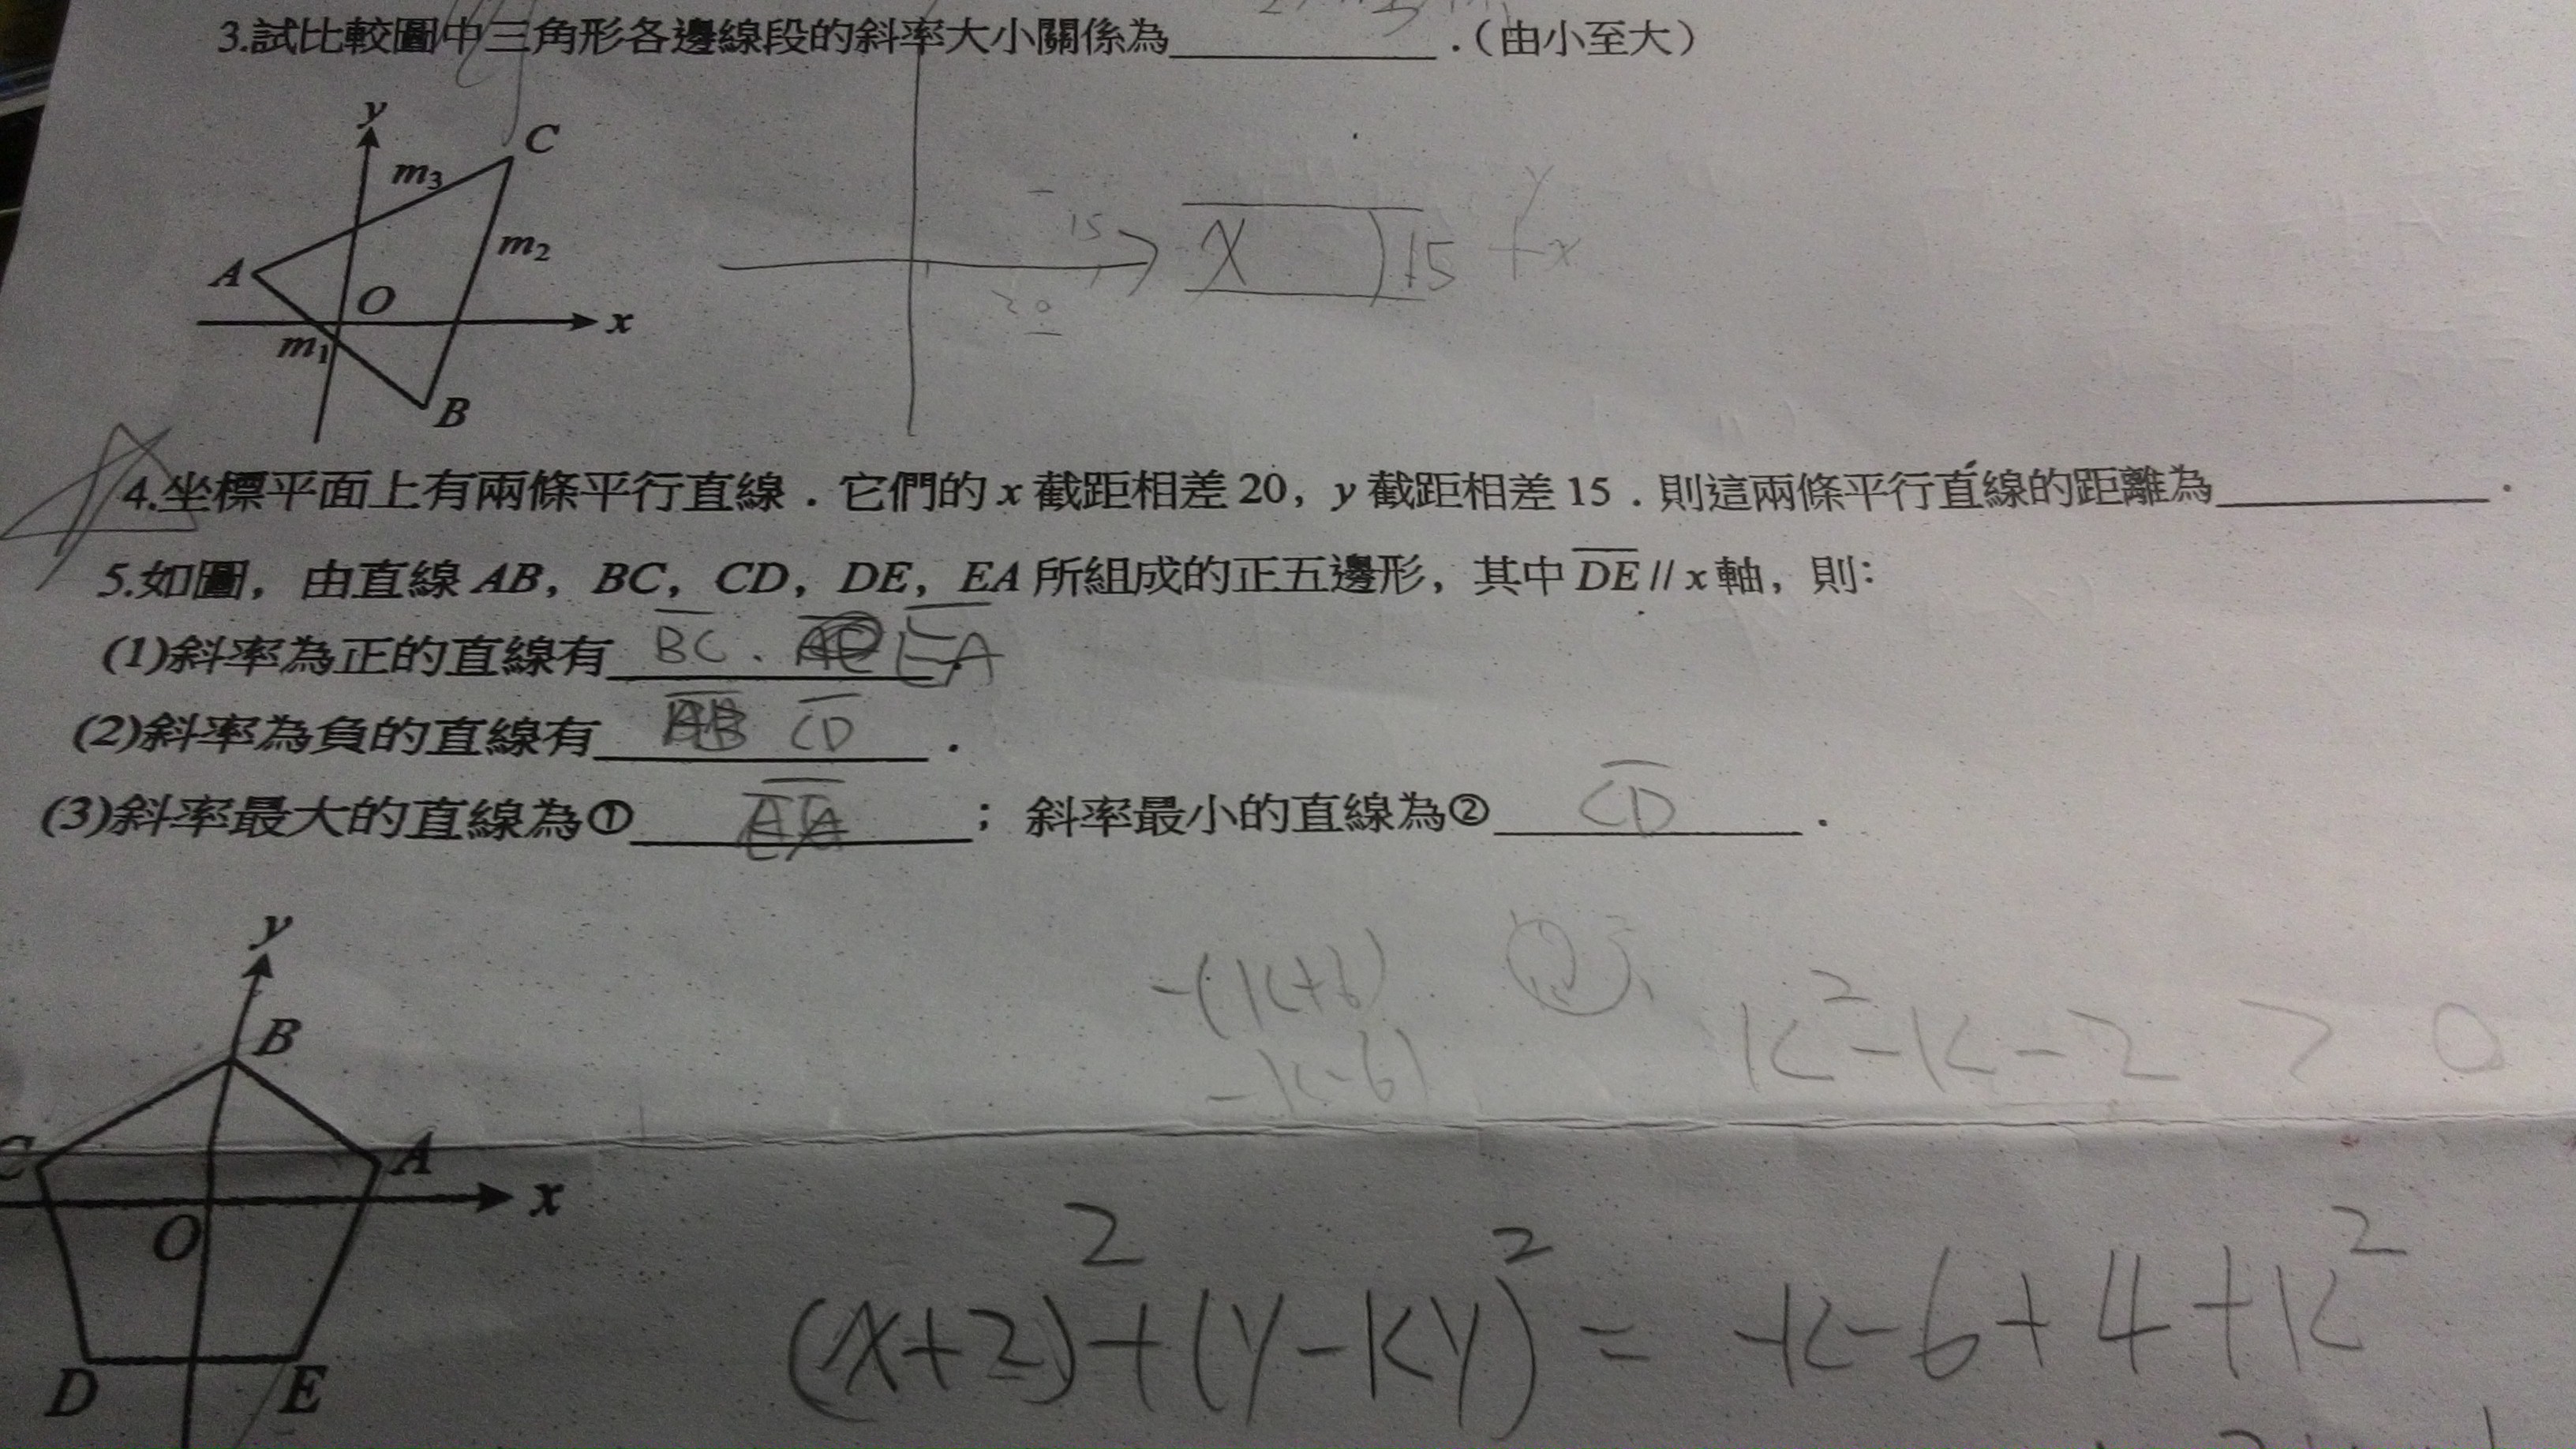 3.試比較圖中三角形各邊線段的斜率大小關係為____________.(由小至大)
y
C
m₃
m₂
A
O
x
m₁
B
15
20
X 15 + x
y
4.坐標平面上有兩條平行直線.它們的 x 截距相差 20, y 截距相差 15.則這兩條平行直線的距離為____________.
5.如圖,由直線 AB, BC, CD, DE, EA 所組成的正五邊形,其中 D̅E̅ // x 軸,則:
(1)斜率為正的直線有 B̅C̅ . E̅A̅
(2)斜率為負的直線有 A̅B̅ C̅D̅ .
(3)斜率最大的直線為① E̅A̅ ; 斜率最小的直線為② C̅D̅ .
y
B
-(k+6)
-k-6)
k²-k-2 > 0
C
A
x
O
D
E
(x+2)²+(y-ky)² = -k-6+4+k²